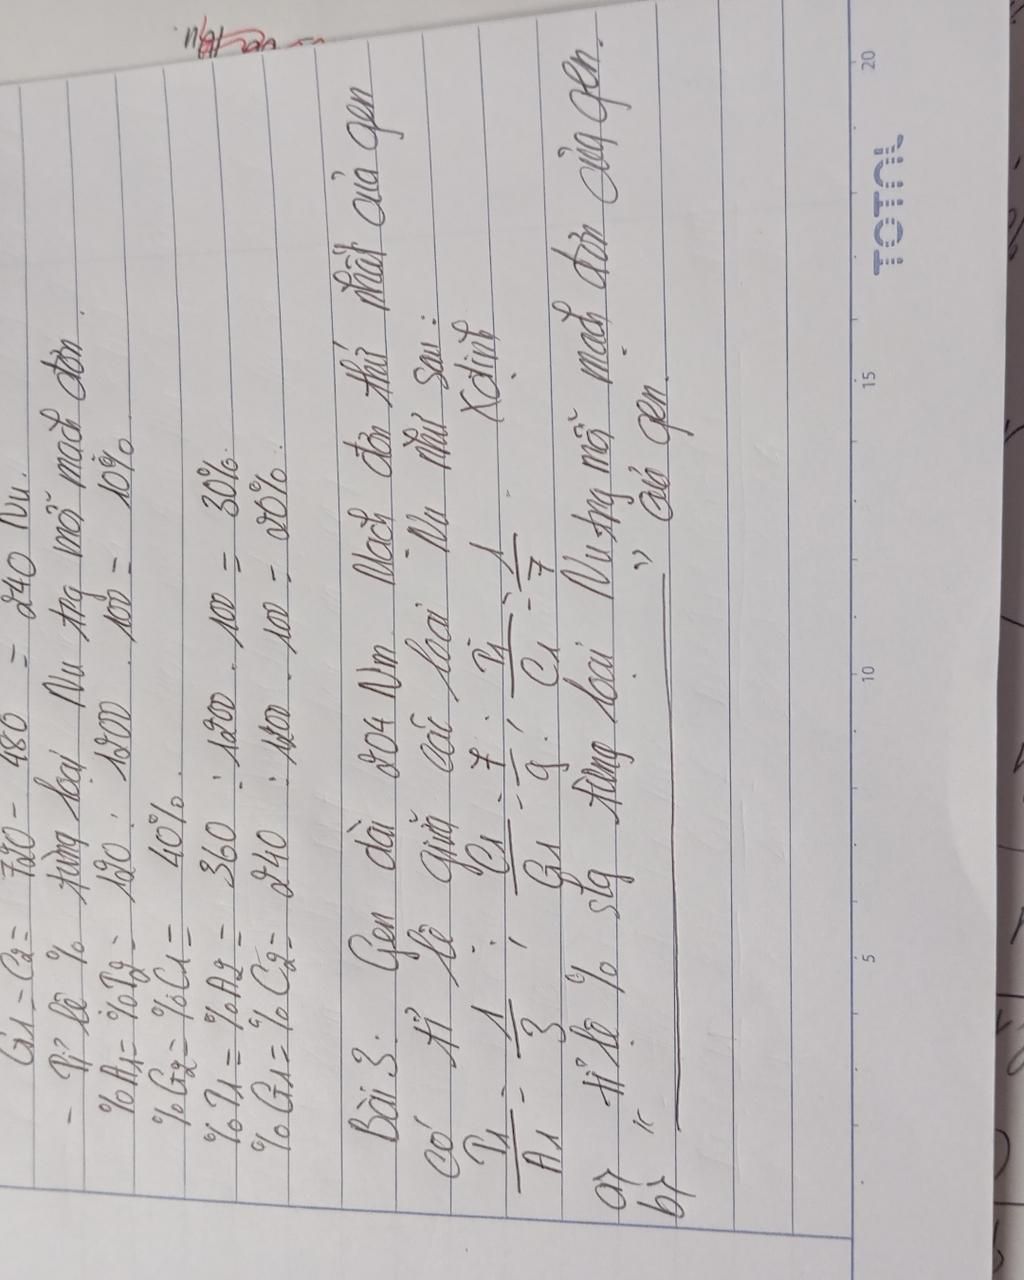 G1 = C2 = 720 - 480 = 240 Nu.
- Tỉ lệ % từng loại Nu trg mỗi mạch đơn.
%A1 = %T2 = 120 : 1200 . 100 = 10%
%G2 = %C1 = 40%.
%T1 = %A2 = 360 : 1200 . 100 = 30%.
%G1 = %C2 = 240 : 1200 . 100 = 20%.
Bài 3. Gen dài 204 Nm. Mạch đơn thứ nhất của gen
có tỉ lệ giữa các loại Nu như sau:
T1/A1 = 1/3 ; C1/G1 = 7/9 ; T1/C1 = 1/7. Xđịnh
a) tỉ lệ % slg từng loại Nu trg mỗi mạch đơn của gen.
b) " ——— " cả gen.
TOTAL
5 10 15 20